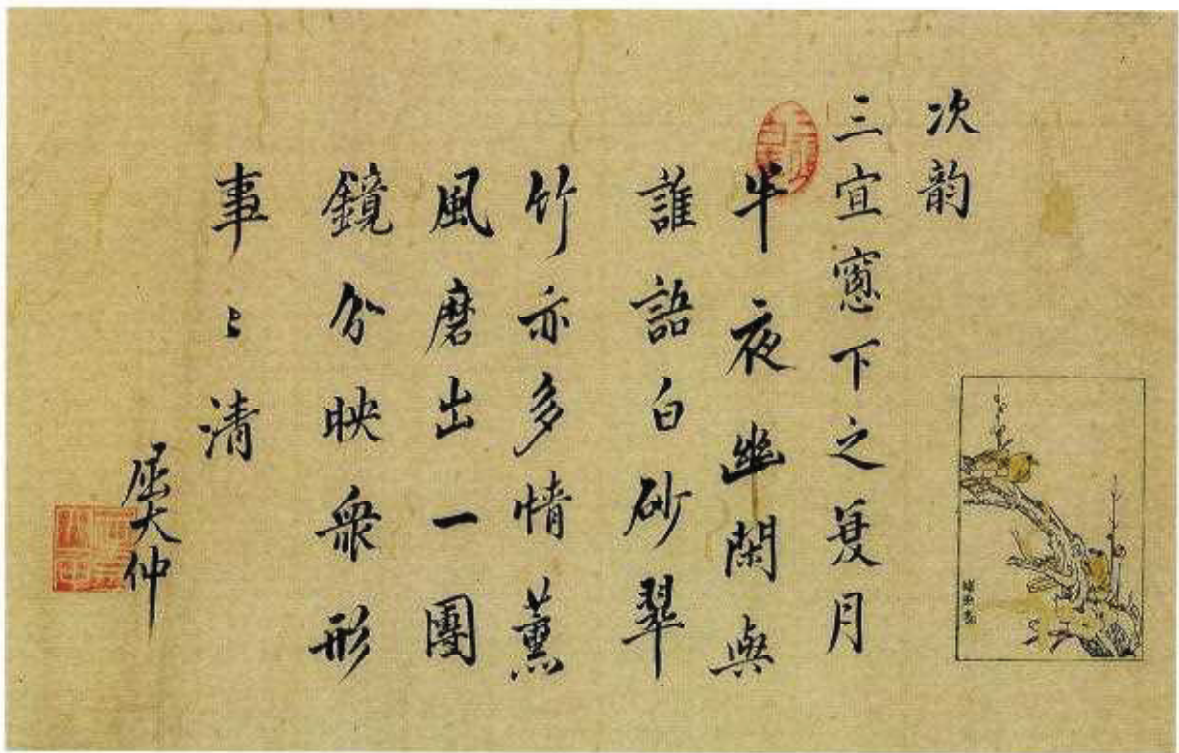 次韵
三宜窻下之夏月
半夜幽閑與
誰語白砂翠
竹亦多情薰
風磨出一團
鏡分映衆形
事〻清
屈大仲